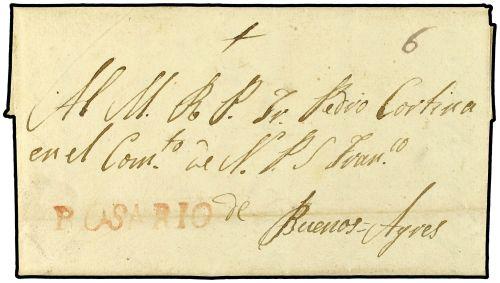 6
Al M. R. P. Fr. Pedro Cortina
en el Com.to de N. P. S Fran.co
ROSARIO de Buenos-Ayres